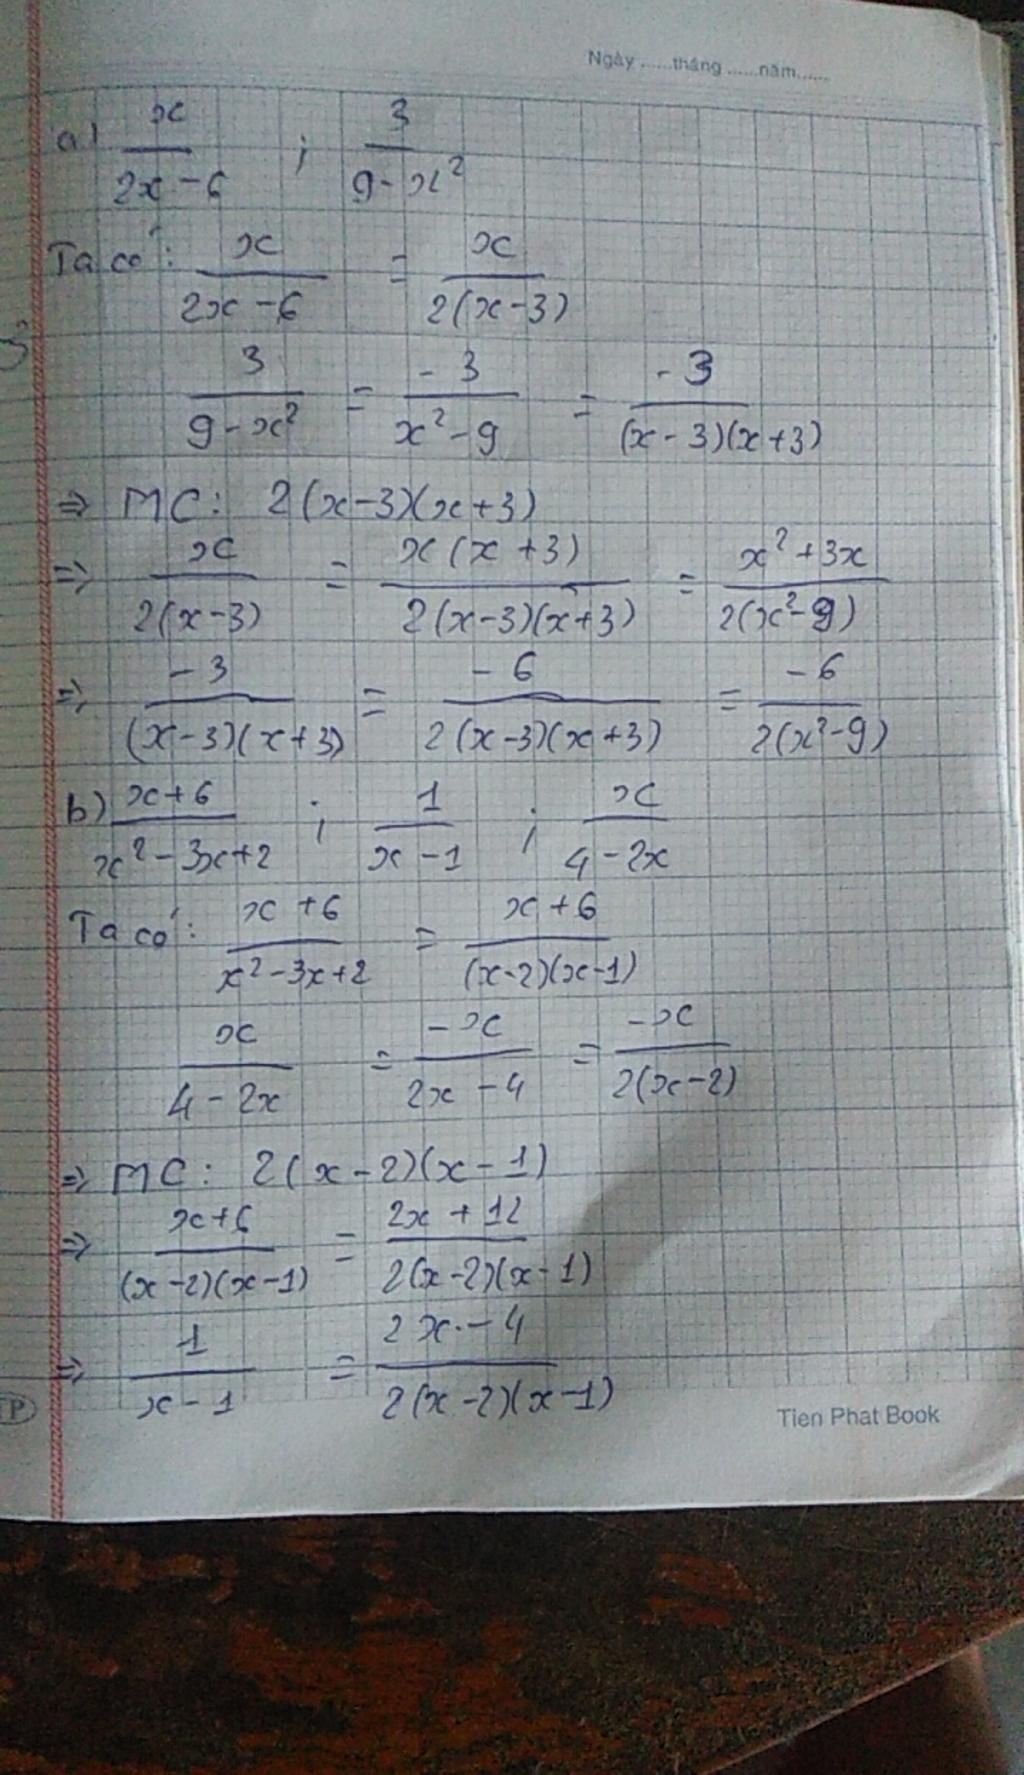 Ngày ......tháng ......năm......
a) x/(2x-6) ; 3/(9-x²)
Ta có: x/(2x-6) = x/(2(x-3))
3/(9-x²) = -3/(x²-9) = -3/((x-3)(x+3))
=> MC: 2(x-3)(x+3)
=> x/(2(x-3)) = x(x+3)/(2(x-3)(x+3)) = (x²+3x)/(2(x²-9))
=> -3/((x-3)(x+3)) = -6/(2(x-3)(x+3)) = -6/(2(x²-9))
b) (x+6)/(x²-3x+2) ; 1/(x-1) ; x/(4-2x)
Ta có: (x+6)/(x²-3x+2) = (x+6)/((x-2)(x-1))
x/(4-2x) = -x/(2x-4) = -x/(2(x-2))
=> MC: 2(x-2)(x-1)
=> (x+6)/((x-2)(x-1)) = (2x+12)/(2(x-2)(x-1))
=> 1/(x-1) = (2x-4)/(2(x-2)(x-1))
Tien Phat Book